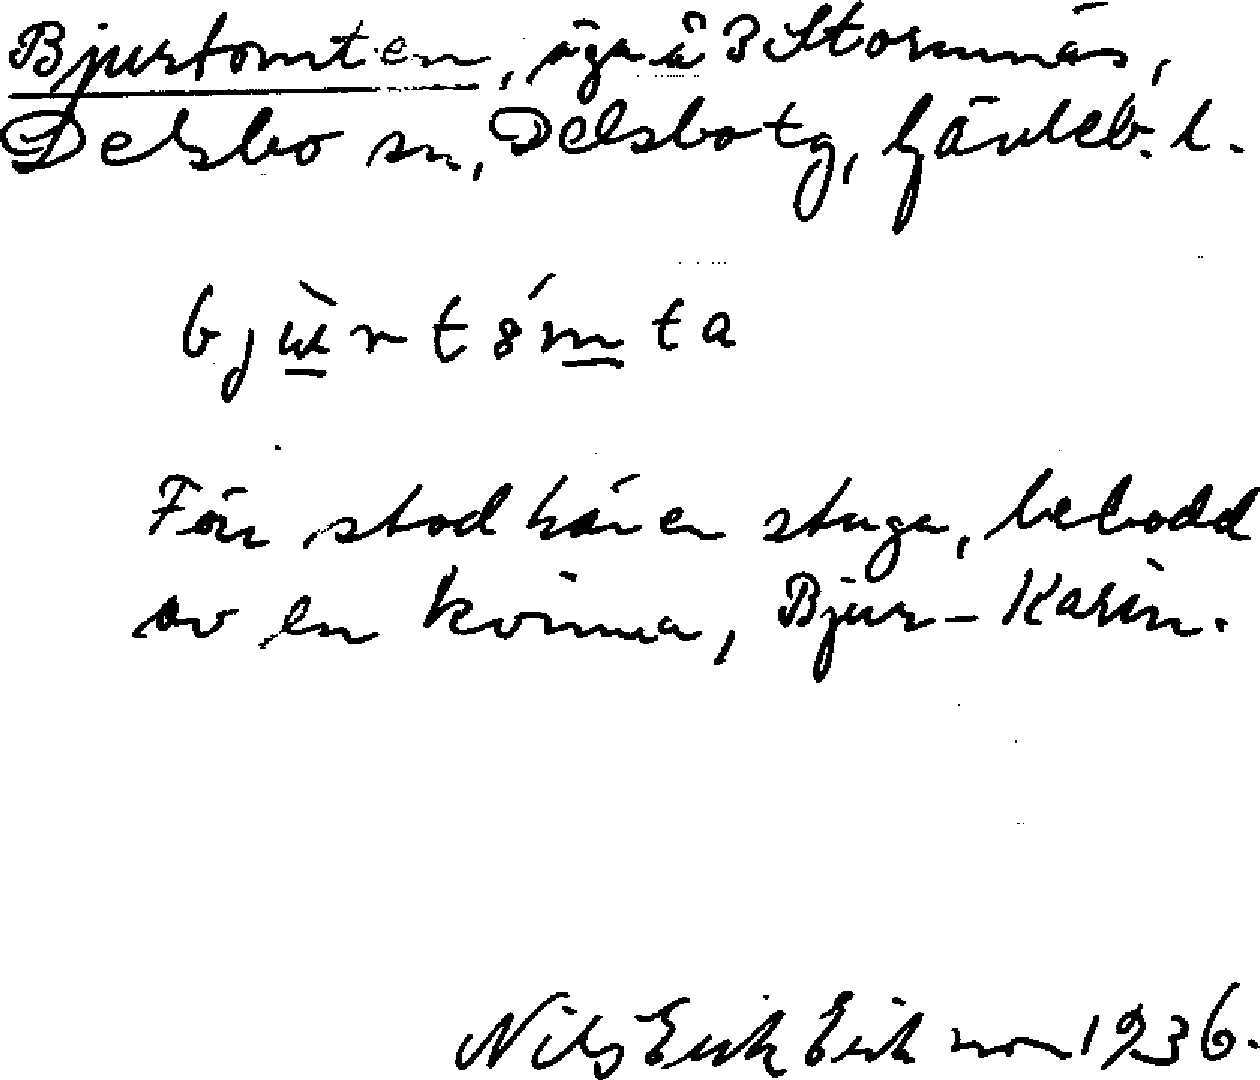 Bjurtomten, äga å 3 Stormnäs,
Delsbo sn, Delsbo tg, Gävleb. l.
bjùrtómta
Förr stod här en stuga, bebodd
av en kvinna, Bjur-Karin.
Nils Erik Eriksson 1936.